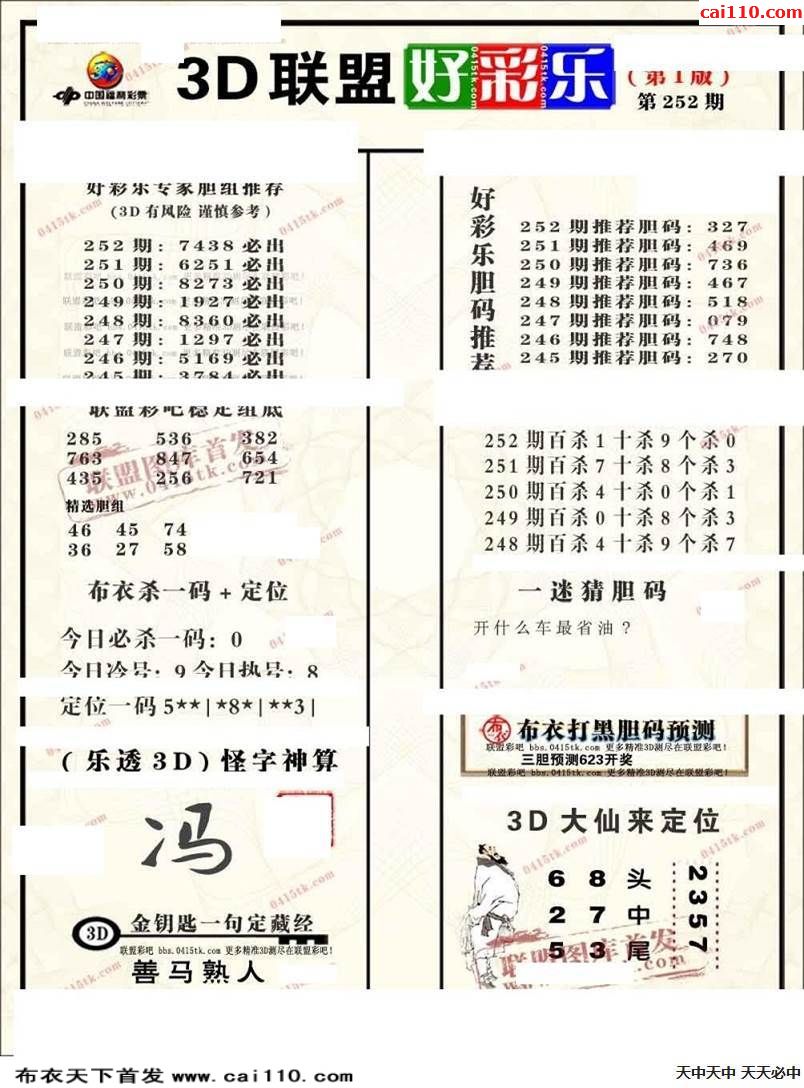 cai110.com
中国福利彩票
CHINA WELFARE LOTTERY
3D联盟好彩乐
(第1版)
第252期
好彩乐专家胆组推荐
(3D有风险 谨慎参考)
252期: 7438必出
251期: 6251必出
250期: 8273必出
249期: 1927必出
248期: 8360必出
247期: 1297必出
246期: 5169必出
245期: 3784必出
联盟彩吧稳定组底
285 536 382
763 847 654
435 256 721
精选胆组
46 45 74
36 27 58
布衣杀一码+定位
今日必杀一码: 0
今日冷号: 9 今日热号: 8
定位一码5**|*8*|**3|
(乐透3D)怪字神算
冯
3D
金钥匙一句定藏经
联盟彩吧 bbs.0415tk.com 更多精准3D测尽在联盟彩吧!
善马熟人
好彩乐胆码推荐
252期推荐胆码: 327
251期推荐胆码: 469
250期推荐胆码: 736
249期推荐胆码: 467
248期推荐胆码: 518
247期推荐胆码: 079
246期推荐胆码: 748
245期推荐胆码: 270
252期百杀1十杀9个杀0
251期百杀7十杀8个杀3
250期百杀4十杀0个杀1
249期百杀0十杀8个杀3
248期百杀4十杀9个杀7
一迷猜胆码
开什么车最省油?
布衣打黑胆码预测
联盟彩吧 bbs.0415tk.com 更多精准3D测尽在联盟彩吧!
三胆预测623开奖
联盟彩吧 bbs.0415tk.com 更多精准3D测尽在联盟彩吧!
3D大仙来定位
6 8 头
2 7 中
5 3 尾
2357
联盟图库首发
www.0415tk.com
布衣天下首发 www.cai110.com
天中天中 天天必中